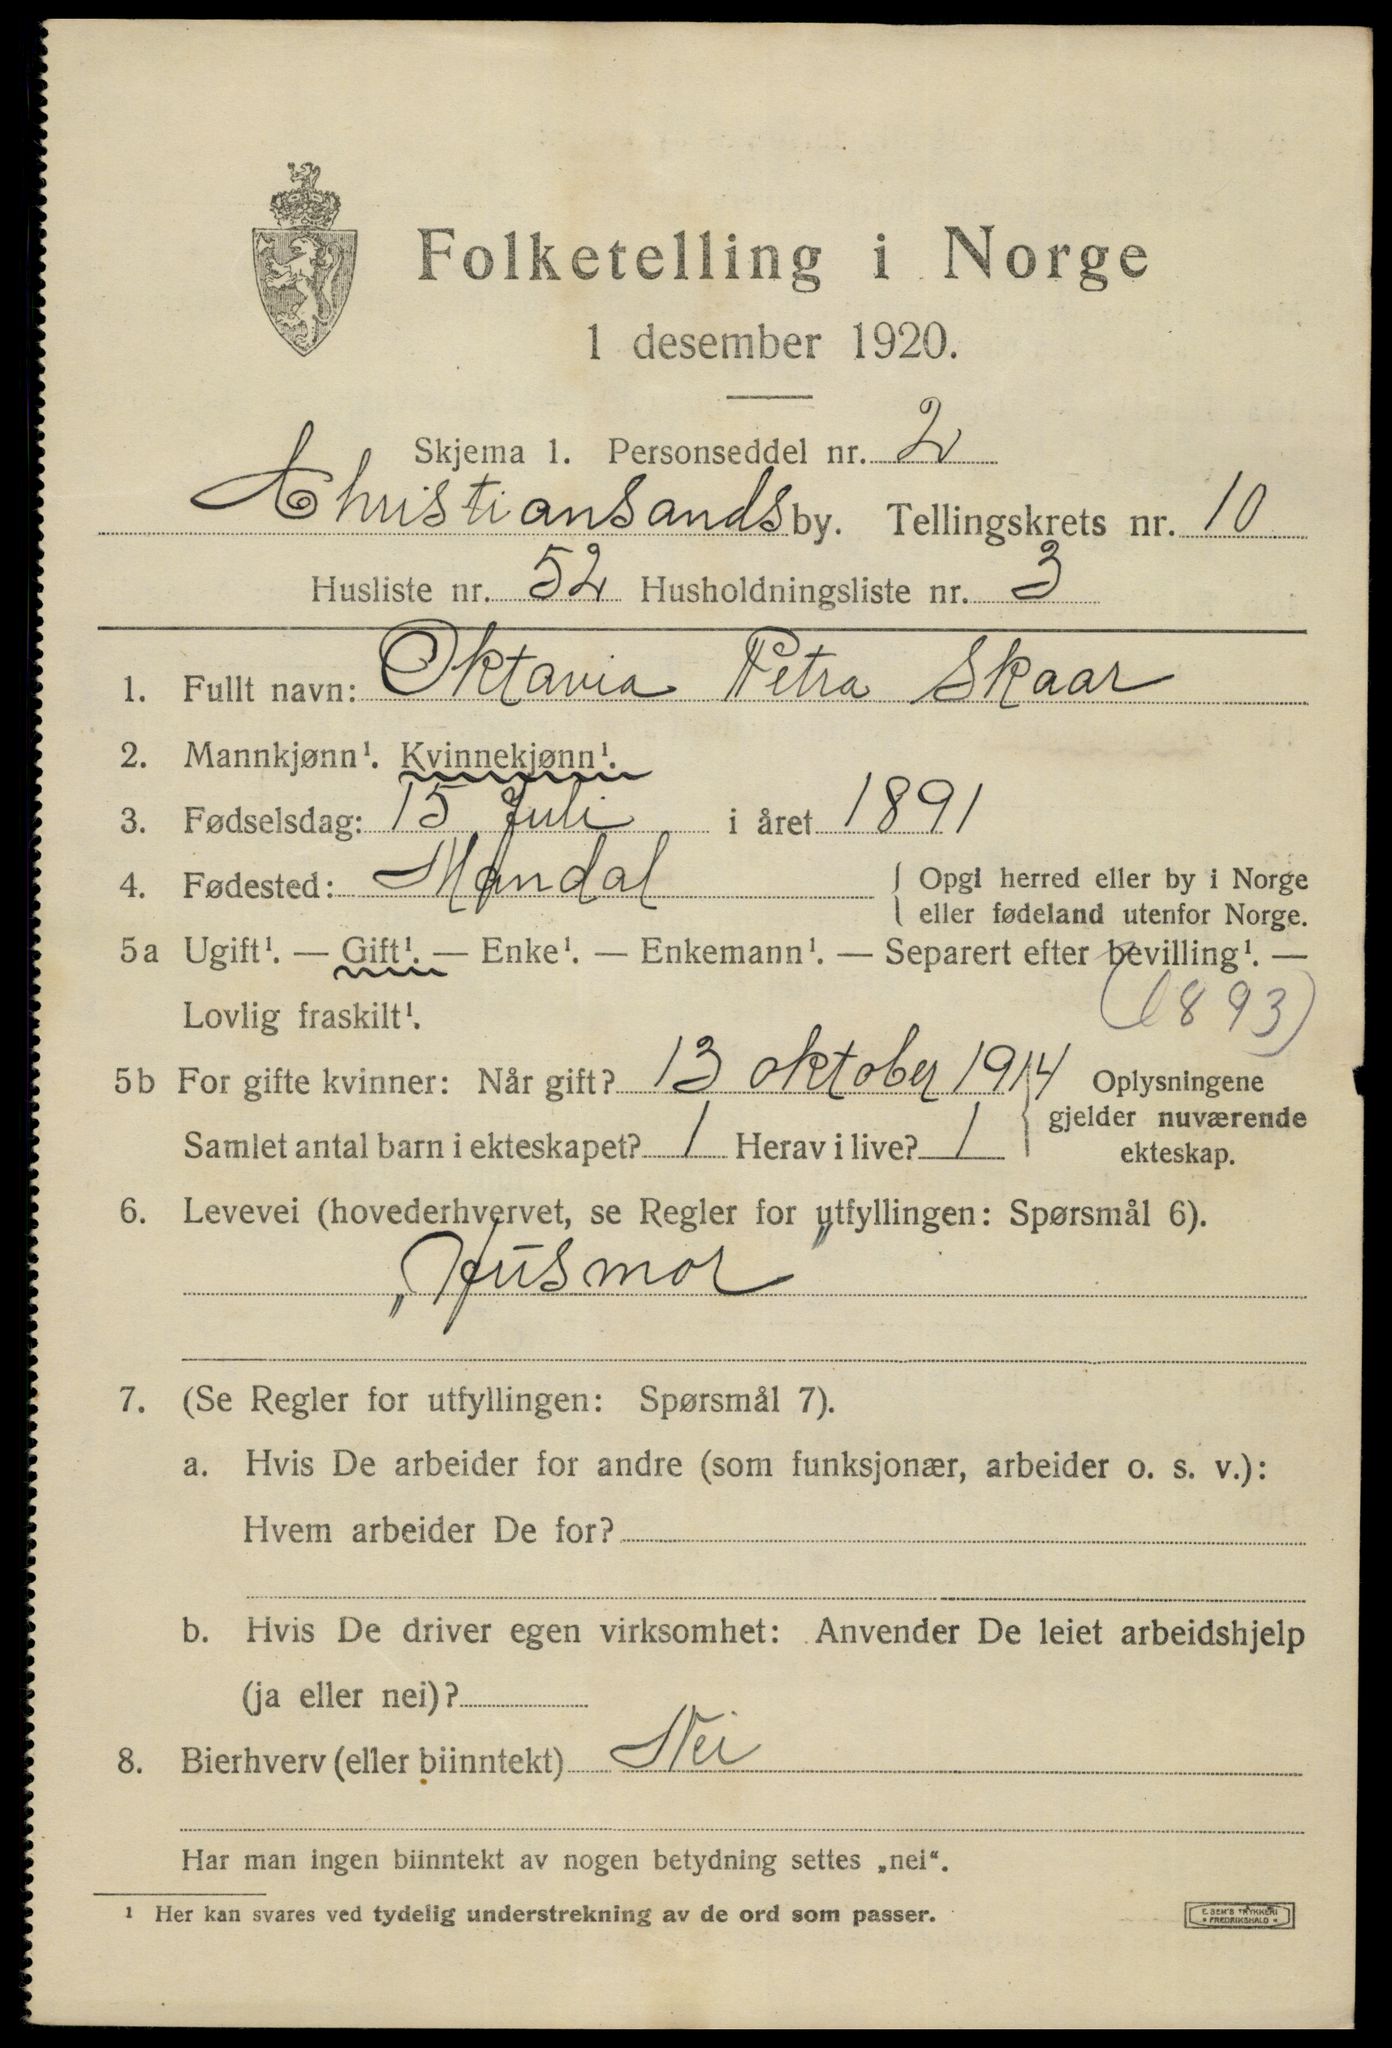 Folketelling i Norge
1 desember 1920.
Skjema 1. Personseddel nr. 2
Christiansands by. Tellingskrets nr. 10
Husliste nr. 52 Husholdningsliste nr. 3
1. Fullt navn: Oktavia Petra Skaar
2. Mannkjønn¹. Kvinnekjønn¹.
3. Fødselsdag: 15 Juli i året 1891
4. Fødested: Mandal { Opgi herred eller by i Norge
eller fødeland utenfor Norge.
5a Ugift¹. — Gift¹. — Enke¹. — Enkemann¹. — Separert efter bevilling¹. —
Lovlig fraskilt¹. (1893)
5b For gifte kvinner: Når gift? 13 oktober 1914 Oplysningene
gjelder nuværende
Samlet antal barn i ekteskapet? 1 Herav i live? 1 ekteskap.
6. Levevei (hovederhvervet, se Regler for utfyllingen: Spørsmål 6).
„Husmor"
7. (Se Regler for utfyllingen: Spørsmål 7).
a. Hvis De arbeider for andre (som funksjonær, arbeider o. s. v.):
Hvem arbeider De for?
b. Hvis De driver egen virksomhet: Anvender De leiet arbeidshjelp
(ja eller nei)?
8. Bierhverv (eller biinntekt) Nei
Har man ingen biinntekt av nogen betydning settes „nei“.
¹ Her kan svares ved tydelig understrekning av de ord som passer.
E. SEM'S TRYKKERI
• FREDRIKSHALD •